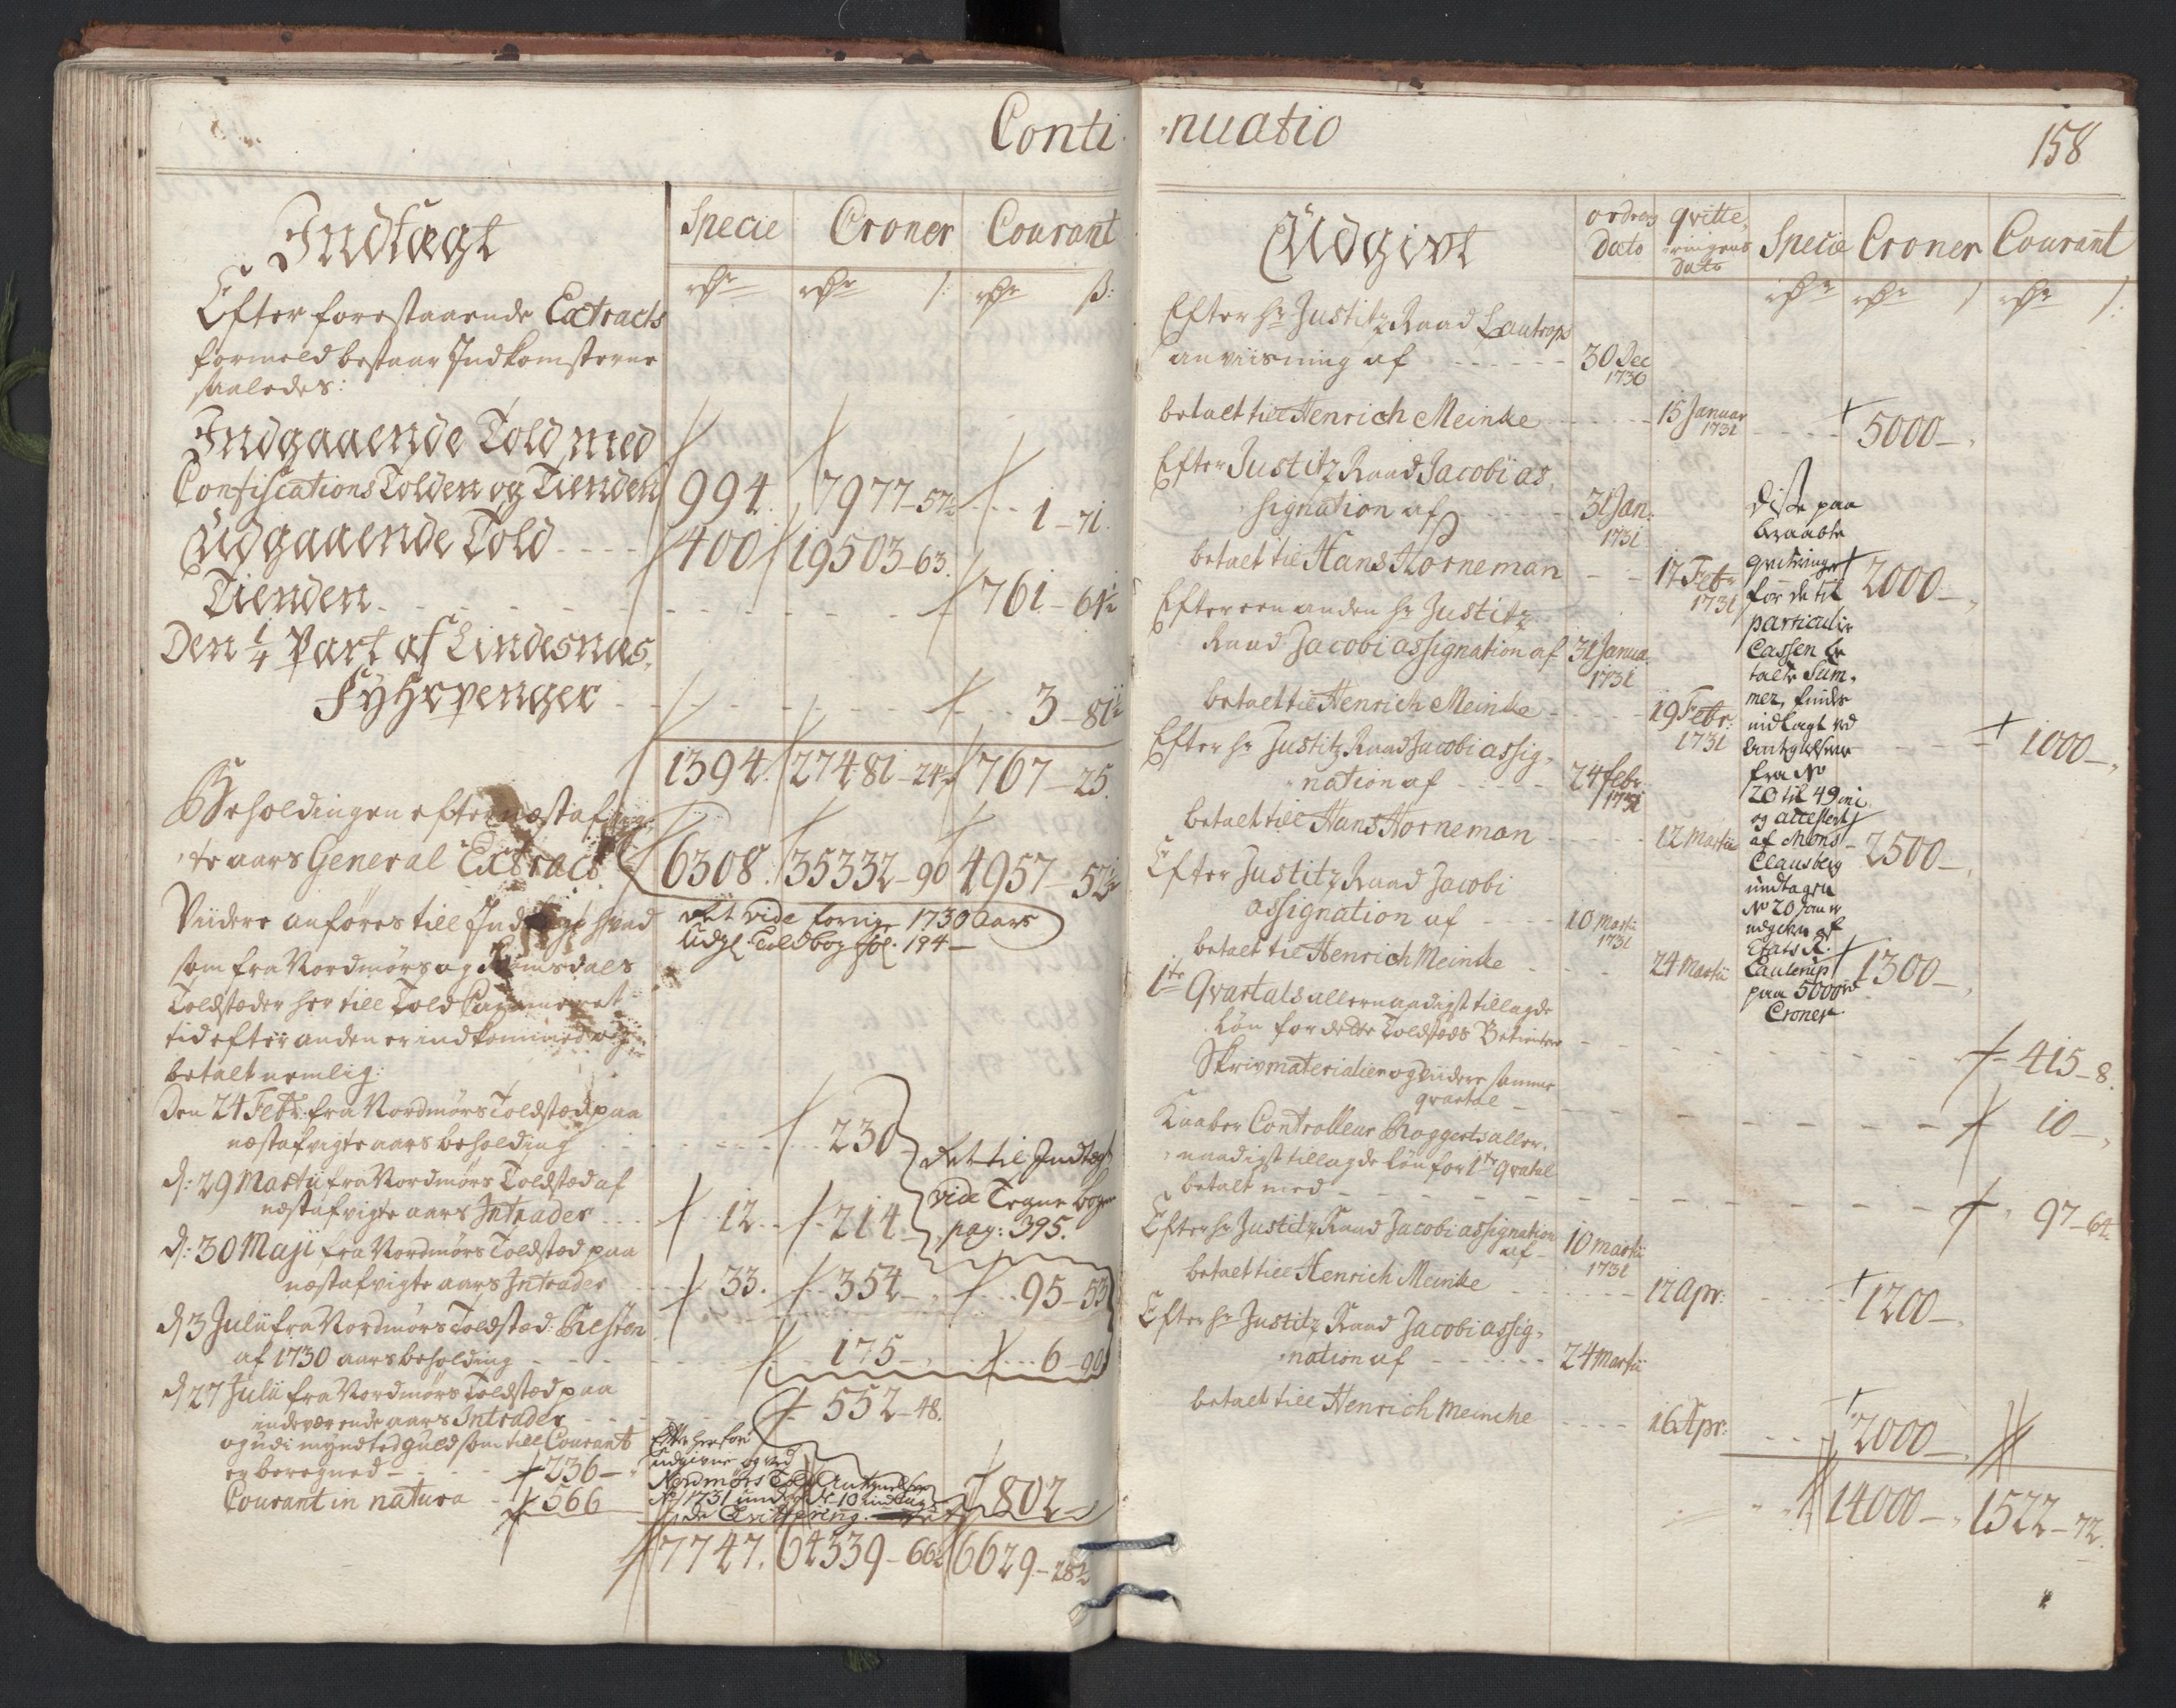 Conti
Indtægt
Specie Croner Courant
rdr rdr ß: rdr ß:
Efter forestaaende Extracts
formeld bestaar Indkomsterne
saaledes:
Indgaaende Told med
Confiscations Tolden og Tienden 994. 7977-57½ 1-71.
Udgaaende Told 400 19503-63.
Tienden 761-64½
Den ¼ Part af Lindesnæs
Fyhrpenger 3-81½
1394. 27481-24½ 767-25.
Beholdingen efter næstafvig¬
te aars General Extract 6308. 35332-90 4957-52½
det vide forrige 1730 Aars
Udgl. Toldbog fol. 194-
Viidere anføres till Indtægt hvad
som fra Nordmørs og Romsdals
Toldstæder her till Told Cammeret
tid efter anden er indkommed og
betalt nemlig:
Den 24 Febr: fra Nordmørs Toldsted paa
næstafvigte aars beholding 230
d: 29 Martii fra Nordmørs Toldsted af
næstafvigte aars Intrader 12. 214
det til Indtægt
vide Tegne bogen
pag: 395.
d: 30 Maji fra Nordmørs Toldsted paa
næstafvigte aars Intrader 33. 354 95-53
d 3 Julii fra Nordmørs Toldsted: Resten
af 1730 aars beholding 175 6-90
d 27 Julii fra Nordmørs Toldsted paa
indeværende aars Intrader 552-48.
og udi myndted guld som till Courant
er beregned 236
Courant in natura 566 802
udgivne og ved
Nordmørs Told Antegnelser
1731 under No 10 indtag
de Qvittering
7747. 64339-66½ 6629-28½
nuatio
158
Udgivt
ordres Dato
qvitte¬ ringens Dato
Specie Croner Courant
rdr rdr ß rdr ß:
Efter hr Justitz Raad Lautrops
anviisning af 30 Dec 1730
betalt till Henrich Meinke 15 Januar 1731 5000
Efter Justitz Raad Jacobi as¬
signation af 31 Jan: 1731
betalt til Hans Horneman 17 Febr 1731 2000
Efter een anden hr Justitz
Raad Jacobi assignation af 31 Janua. 1731
betalt til Henrich Meinke 19 Febr: 1731 1000
Efter hr Justitz Raad Jacobi assig¬
nation af 24 febr. 1731
betalt till Hans Horneman 12 Martii 2500
Efter Justitz Raad Jacobi
assignation af 10 Martii 1731
betalt til Henrich Meinke 24 Martii 1300
Disse paa
beraabte
qvitteringer
for de til
particulir
Cassen be
talte Sum¬
mer, findes
indlagt ved
Antegnelserne
fra No
20 til 49 in:
og attesteret
af Mons
Clausberg
undtagen
No 20 som er
udgiven af
Etats R.
Lautrup
paa 5000 rd
Croner
1te Qvartals allernaadigst tillagde
Løn for dette Toldsteds Betientere 415-8.
Skrivmaterialier og viidere samme
qvartal 10
Kaaber Controlleur Roggerts aller¬
naadigst tillagde løn for 1te Qvartal
betalt med 97-64
Efter hr Justitz Raad Jacobi assignation
af 10 Martii 1731
betalt till Henrich Meinke 12 Apr: 1200
Efter hr Justitz Raad Jacobi assig¬
nation af 24 Martii
betalt till Henrich Meinche 16 Apr: 2000
14000 1522-72.